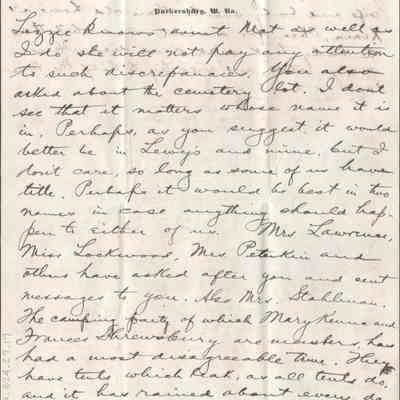 Parkersburg, W. Va.
Lizzie knows aunt Mat as well as
I do she will not pay any attention
to such discrepancies. You also
asked about the cemetery lot. I don't
see that it matters whose name it is
in. Perhaps, as you suggest, it would
better be in Lewy's and mine, but I
don't care, so long as some of us have
title. Perhaps it would be best in two
names in case anything should hap-
pen to either of us. Mrs Lawrence,
Miss Lockwood, Mrs Peterkin and
others have asked after you and sent
messages to you. Also Mrs. Stahlman.
The camping party of which Mary Kenna and
Frances Shrewsbury are members, has
had a most disagreeable time. They
have tents which leak, as all tents do,
and it has rained about every da